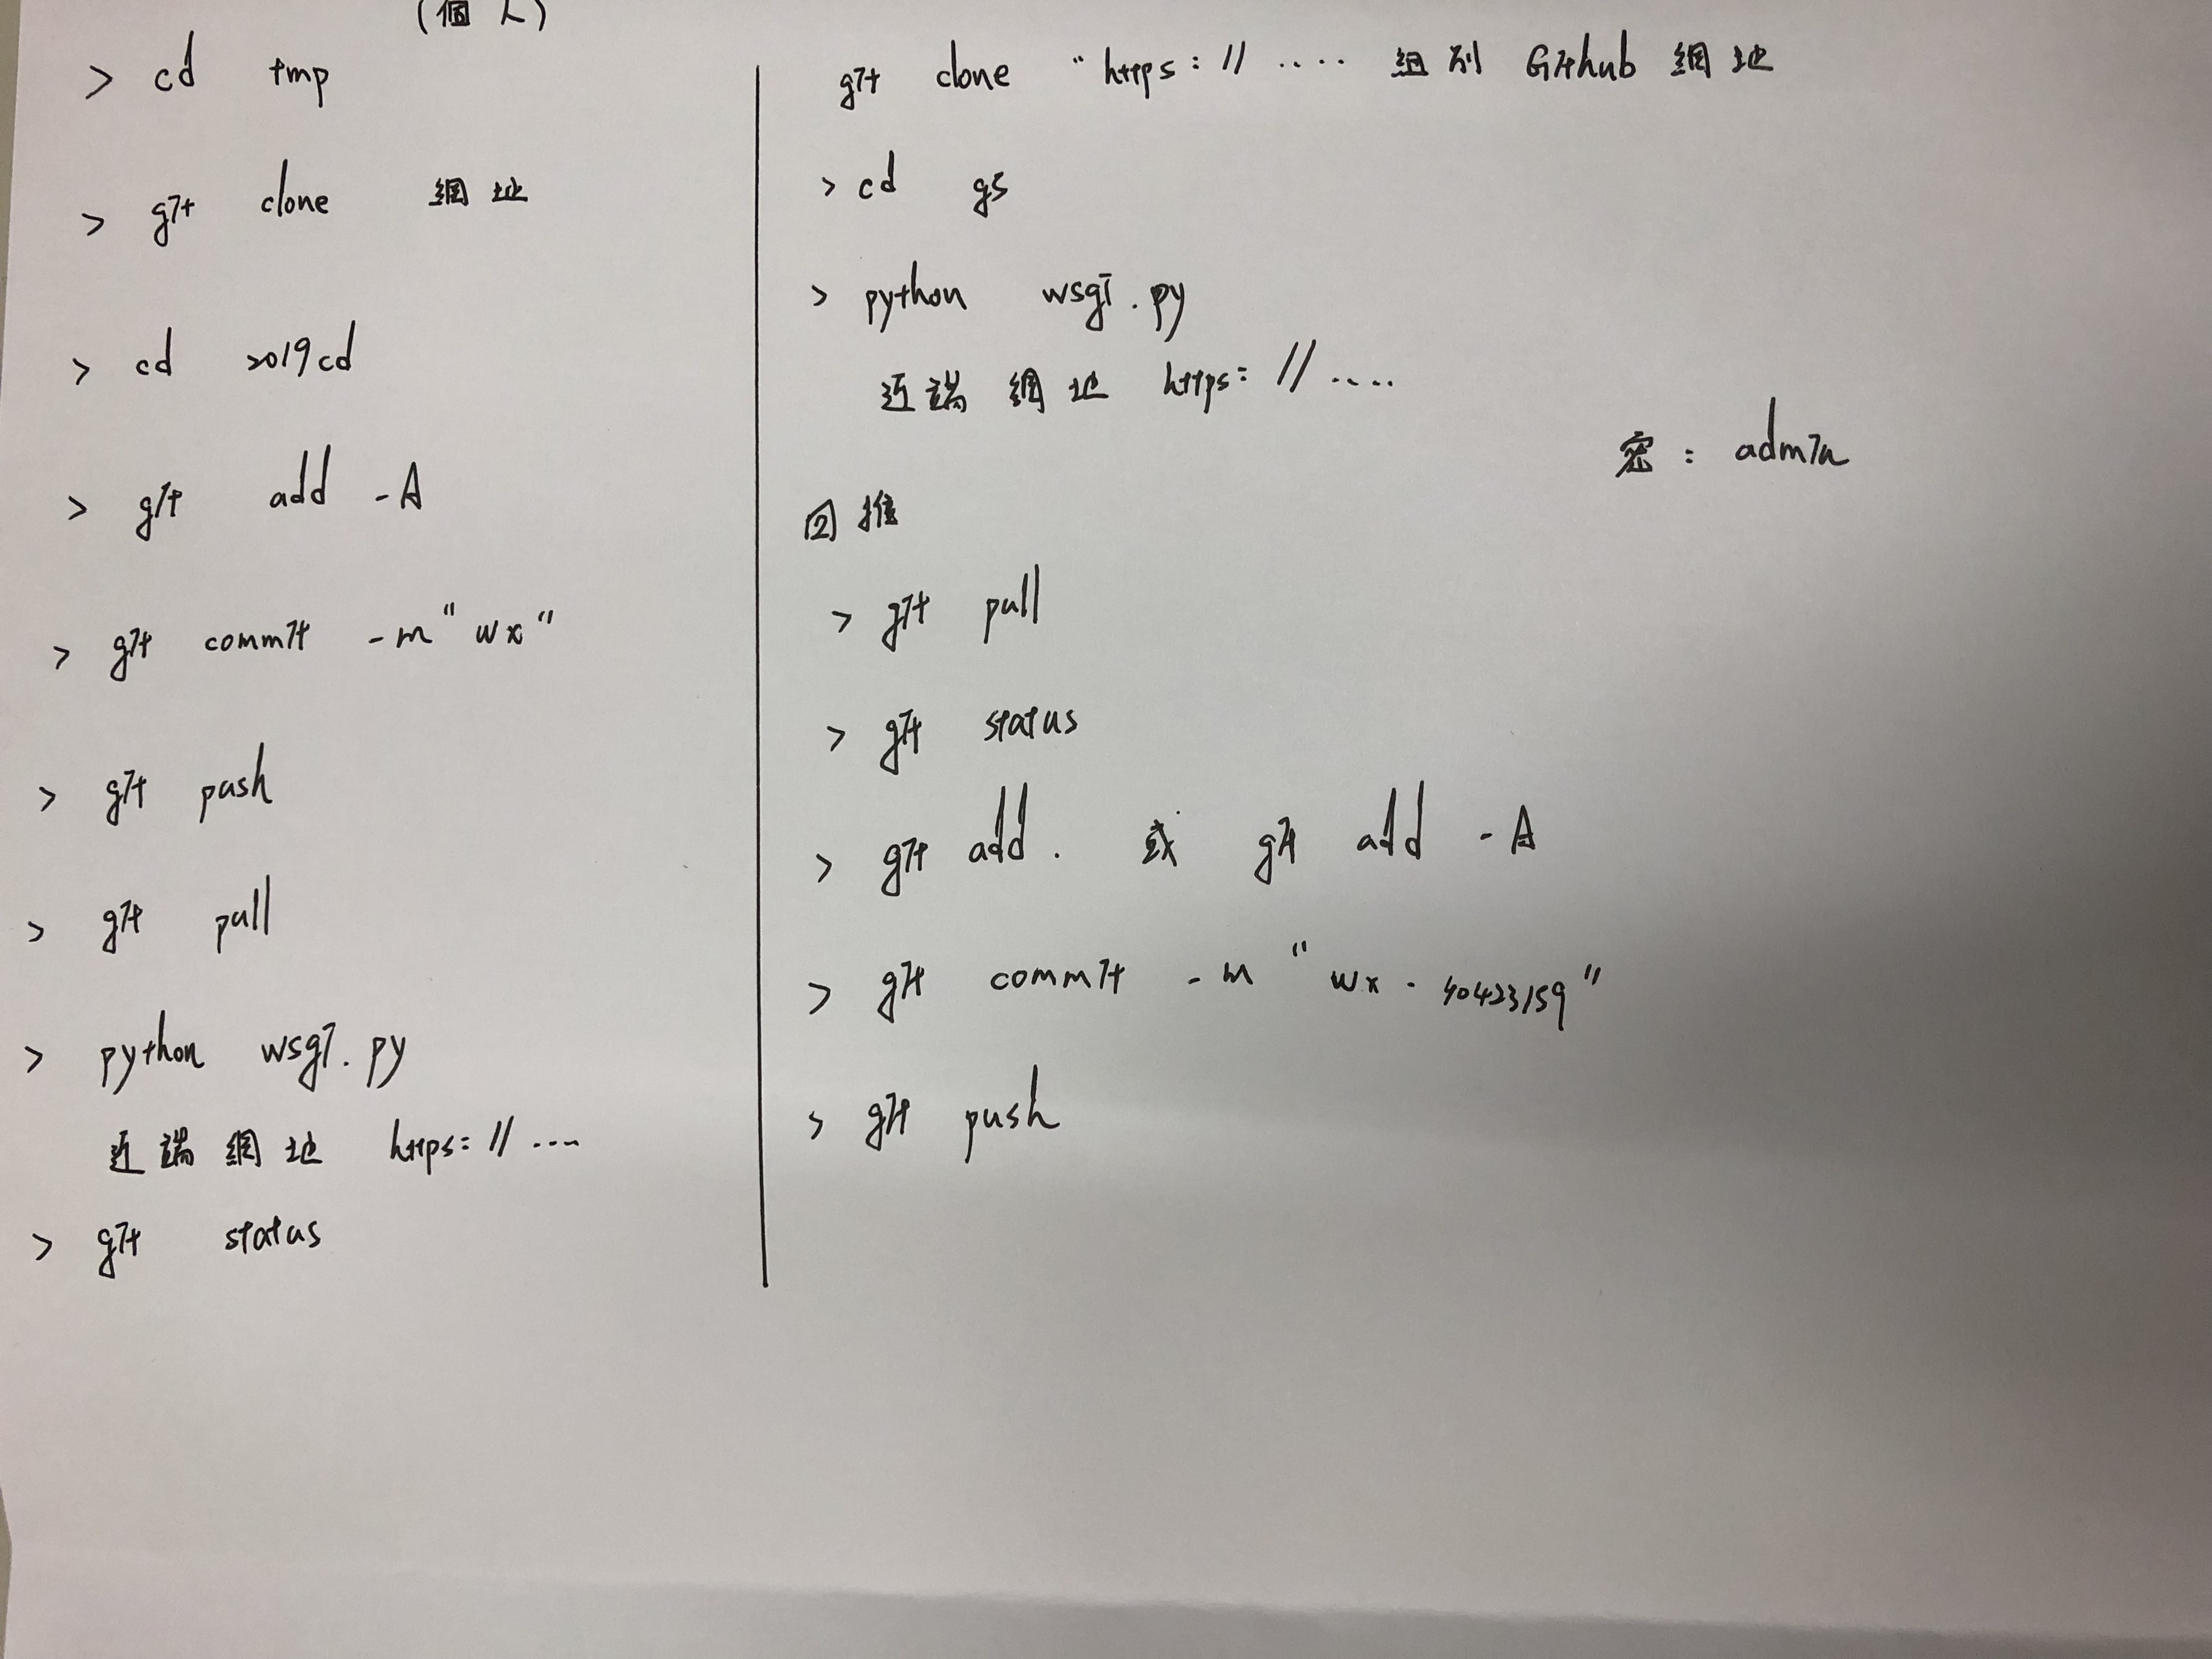 (個人)
> cd tmp
> git clone 網址
> cd 2019cd
> git add -A
> git commit -m "wx"
> git push
> git pull
> python wsgi.py
近端網址 https://....
> git status
git clone "https://.... 組別 GitHub 網址
> cd g5
> python wsgi.py
近端網址 https://.....
密: admin
回推
> git pull
> git status
> git add . 或 git add -A
> git commit -m "wx. 40423159"
> git push